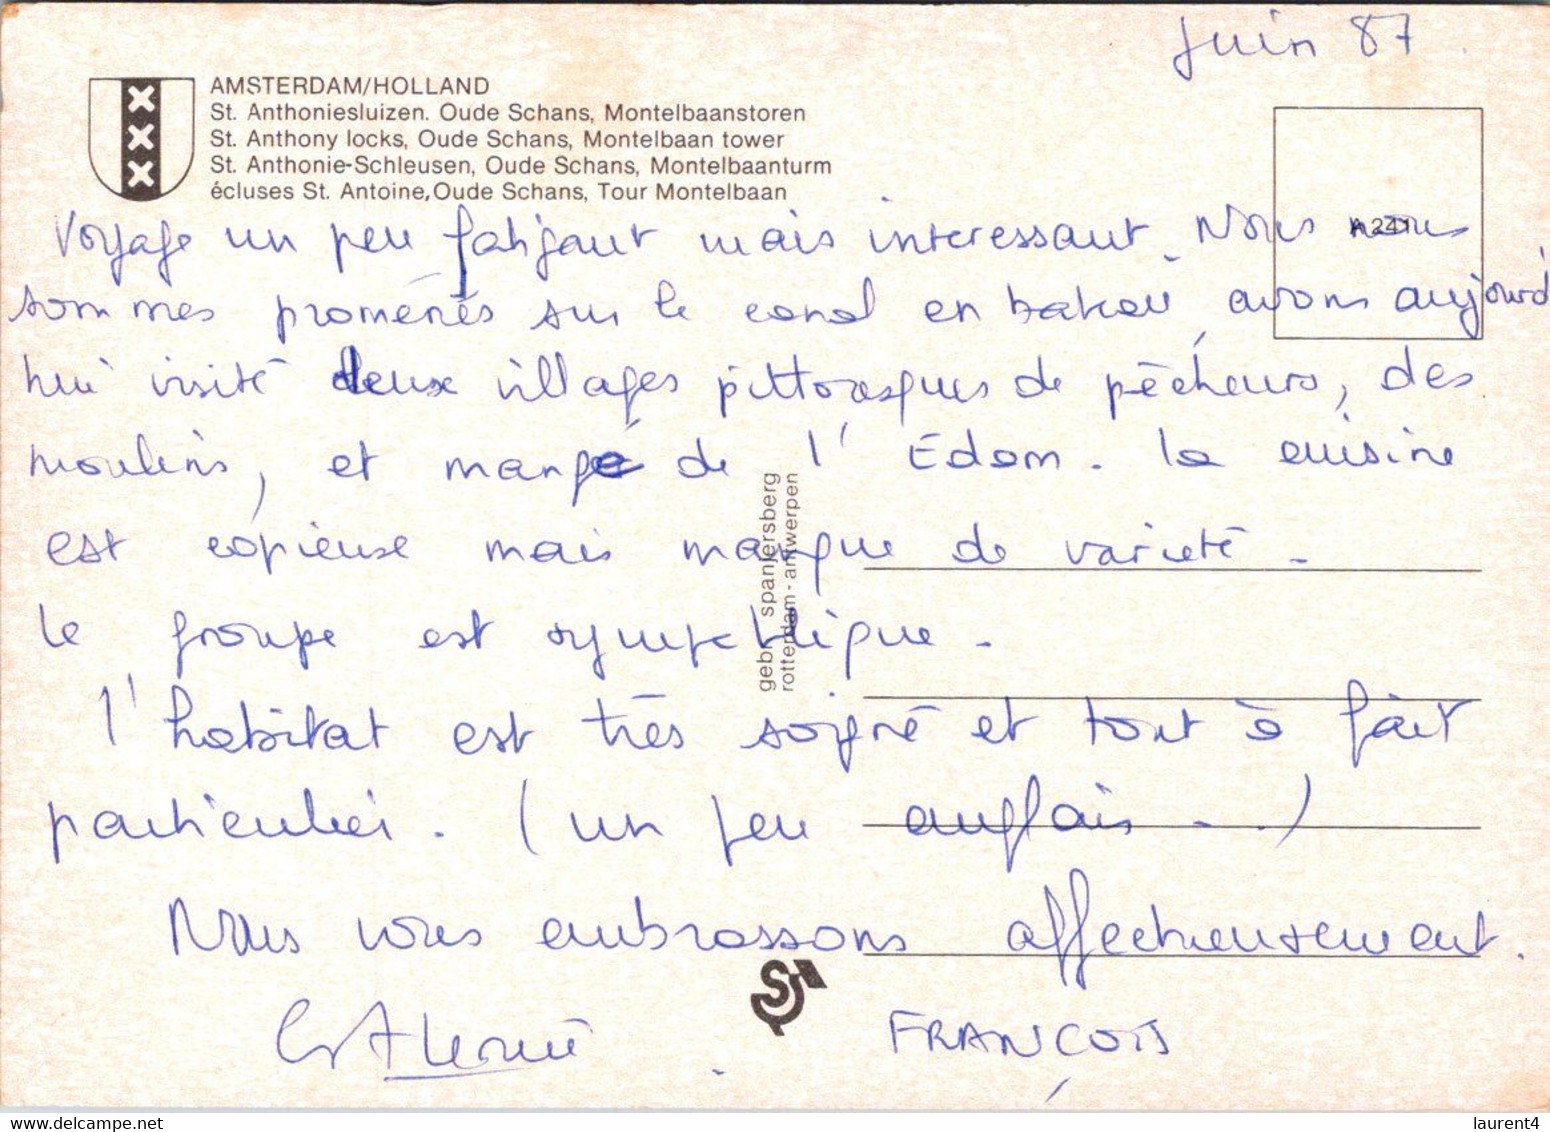 Juin 87
AMSTERDAM/HOLLAND
St. Anthoniesluizen. Oude Schans, Montelbaanstoren
St. Anthony locks, Oude Schans, Montelbaan tower
St. Anthonie-Schleusen, Oude Schans, Montelbaanturm
écluses St. Antoine, Oude Schans, Tour Montelbaan
A 241
Voyage un peu fatigant mais interessant. Nous nous
sommes promenés sur le canal en bateau, avons aujourd'
hui visité deux villages pittoresques de pêcheurs, des
moulins, et mangé de l'Edam. La cuisine
est copieuse mais manque de varieté.
Le groupe est sympathique.
L'habitat est très soigné et tout à fait
particulier. (un peu anglais..)
Nous vous embrassons affectueusement.
FRANÇOIS
gebr. spanjersberg
rotterdam - antwerpen
www.delcampe.net
laurent4